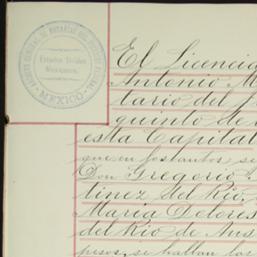 Estados Unidos
Mexicanos.
MEXICO
El Licencia
Antonio M
tario del
quinto de
esta Capital
que en
Don Gregorio
tinez del Rio,
Maria Dolores
del Rio de
pesos, se hallan las